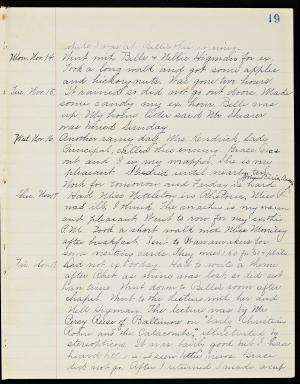 19
while I was at Belle's this evening.
Mon. Nov. 14. Went with Belle & Nellie Higman for ex.
Took a long walk and got some apples
and hickory nuts. Was gone two hours.
Tue. Nov. 15. It rained so did not go out doors. Made
some candy my ex. hour. Belle was
up. My home letter said Mr. Shearer
was buried Sunday.
Wed. Nov. 16. Another rainy day. Mrs. Kendrick, Lady
Principal, called this evening. Grace was
out and I in my wrapper. She is very
pleasant. Studied until nearly ten.
Work for tomorrow and Friday is hard.
Thu. Nov. 17. Had Miss Nettleton in
was ill, I think. The weather is very warm
and pleasant. Went to row for my ex. this
P.M. Took a short walk with Miss
after breakfast. Sent to Wanamakers for
some visiting cards. They were
Fri. Nov. 18. Did not go today. Had to write a theme
after Rhet as mine was lost, so did not
Went down to Belle's room after
chapel. Went to the lecture with her and
Nell Higman. The lecture was by Mr.
Percy Reese of Baltimore on "Early Christian
Rome and the Catacombs," illustrated by
stereopticon. It was fairly good but I have
heard and seen better ones. Grace
did not go. After I returned I made a cup